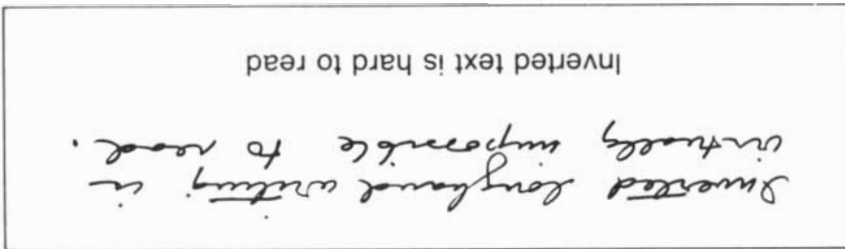 Inverted longhand writing is
virtually impossible to read.
Inverted text is hard to read